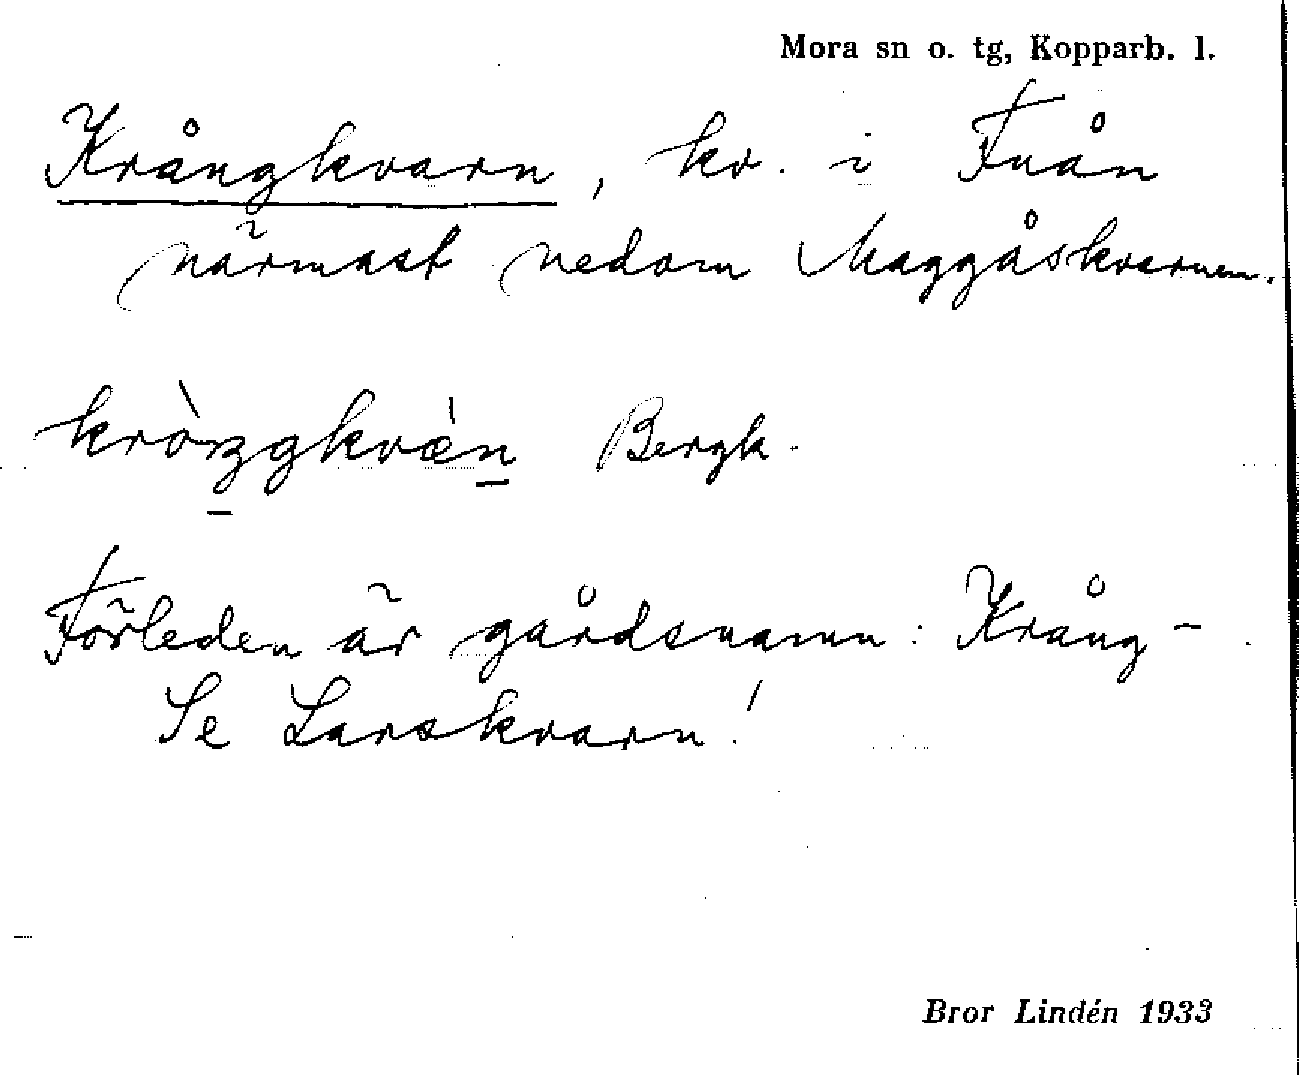 Mora sn o. tg, Kopparb. l.
Krångkvarn, kv. i Fuån
närmast nedom Maggåskvarnen.
Bergk.
Förleden är gårdsnamn: Krång-
Se Larskvarn!
Bror Lindén 1933